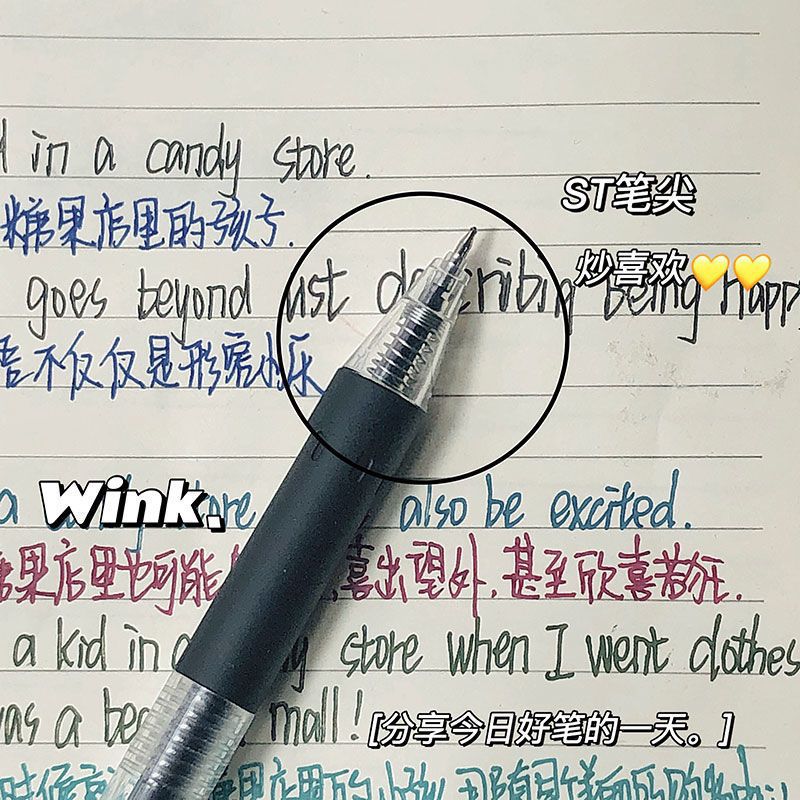 in a candy store.
糖果店里的孩子.
ST笔尖
炒喜欢💛💛
goes beyond just describing being happy
不仅仅是形容快乐
Wink.
a store also be excited.
糖果店里也可能 喜出望外,甚至欣喜若狂.
a kid in a store when I went clothes
was a mall!
[分享今日好笔的一天。]
时候 糖果店里的小孩